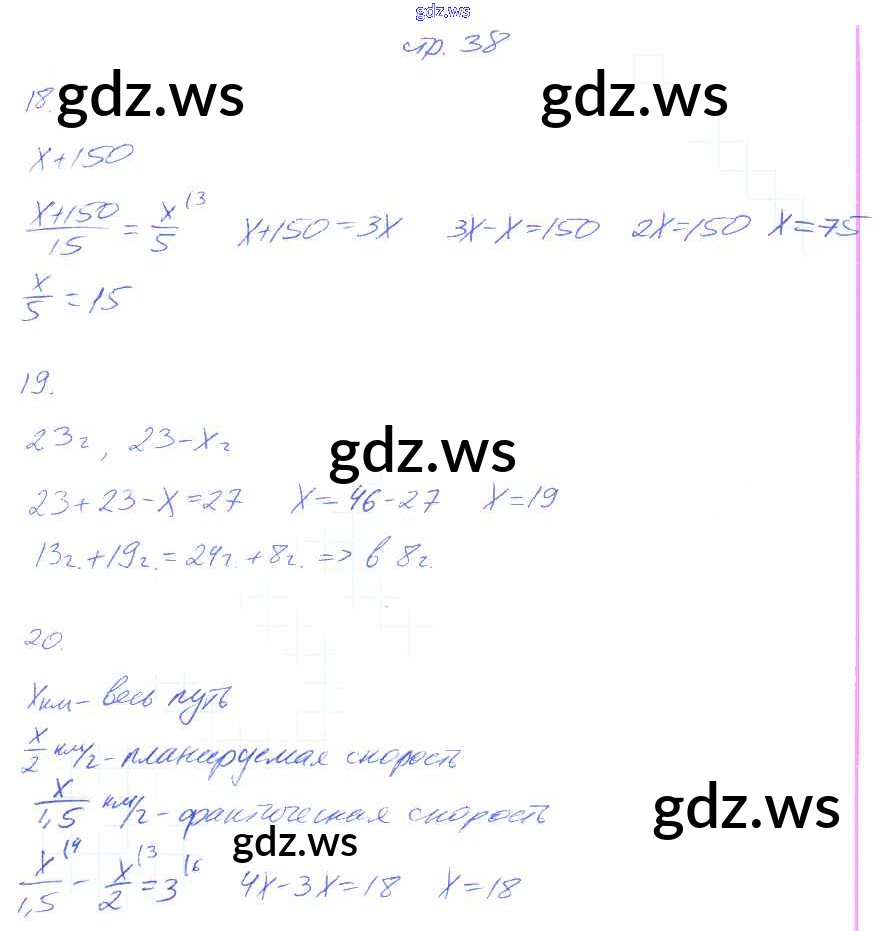 gdz.ws
стр. 38
18. gdz.ws gdz.ws
x+150
(x+150)/15 = x/5 (3 x+150=3x 3x-x=150 2x=150 x=75
x/5 = 15
19.
23г, 23-xг
gdz.ws
23+23-x=27 x=46-27 x=19
13г.+19г.=24г.+8г. => в 8г.
20.
xкм- весь путь
x/2 км/г-планируемая скорость
x/1,5 км/г-фактическая скорость
gdz.ws
gdz.ws
x/1,5 (4 - x/2 (3 = 3 (6 4x-3x=18 x=18